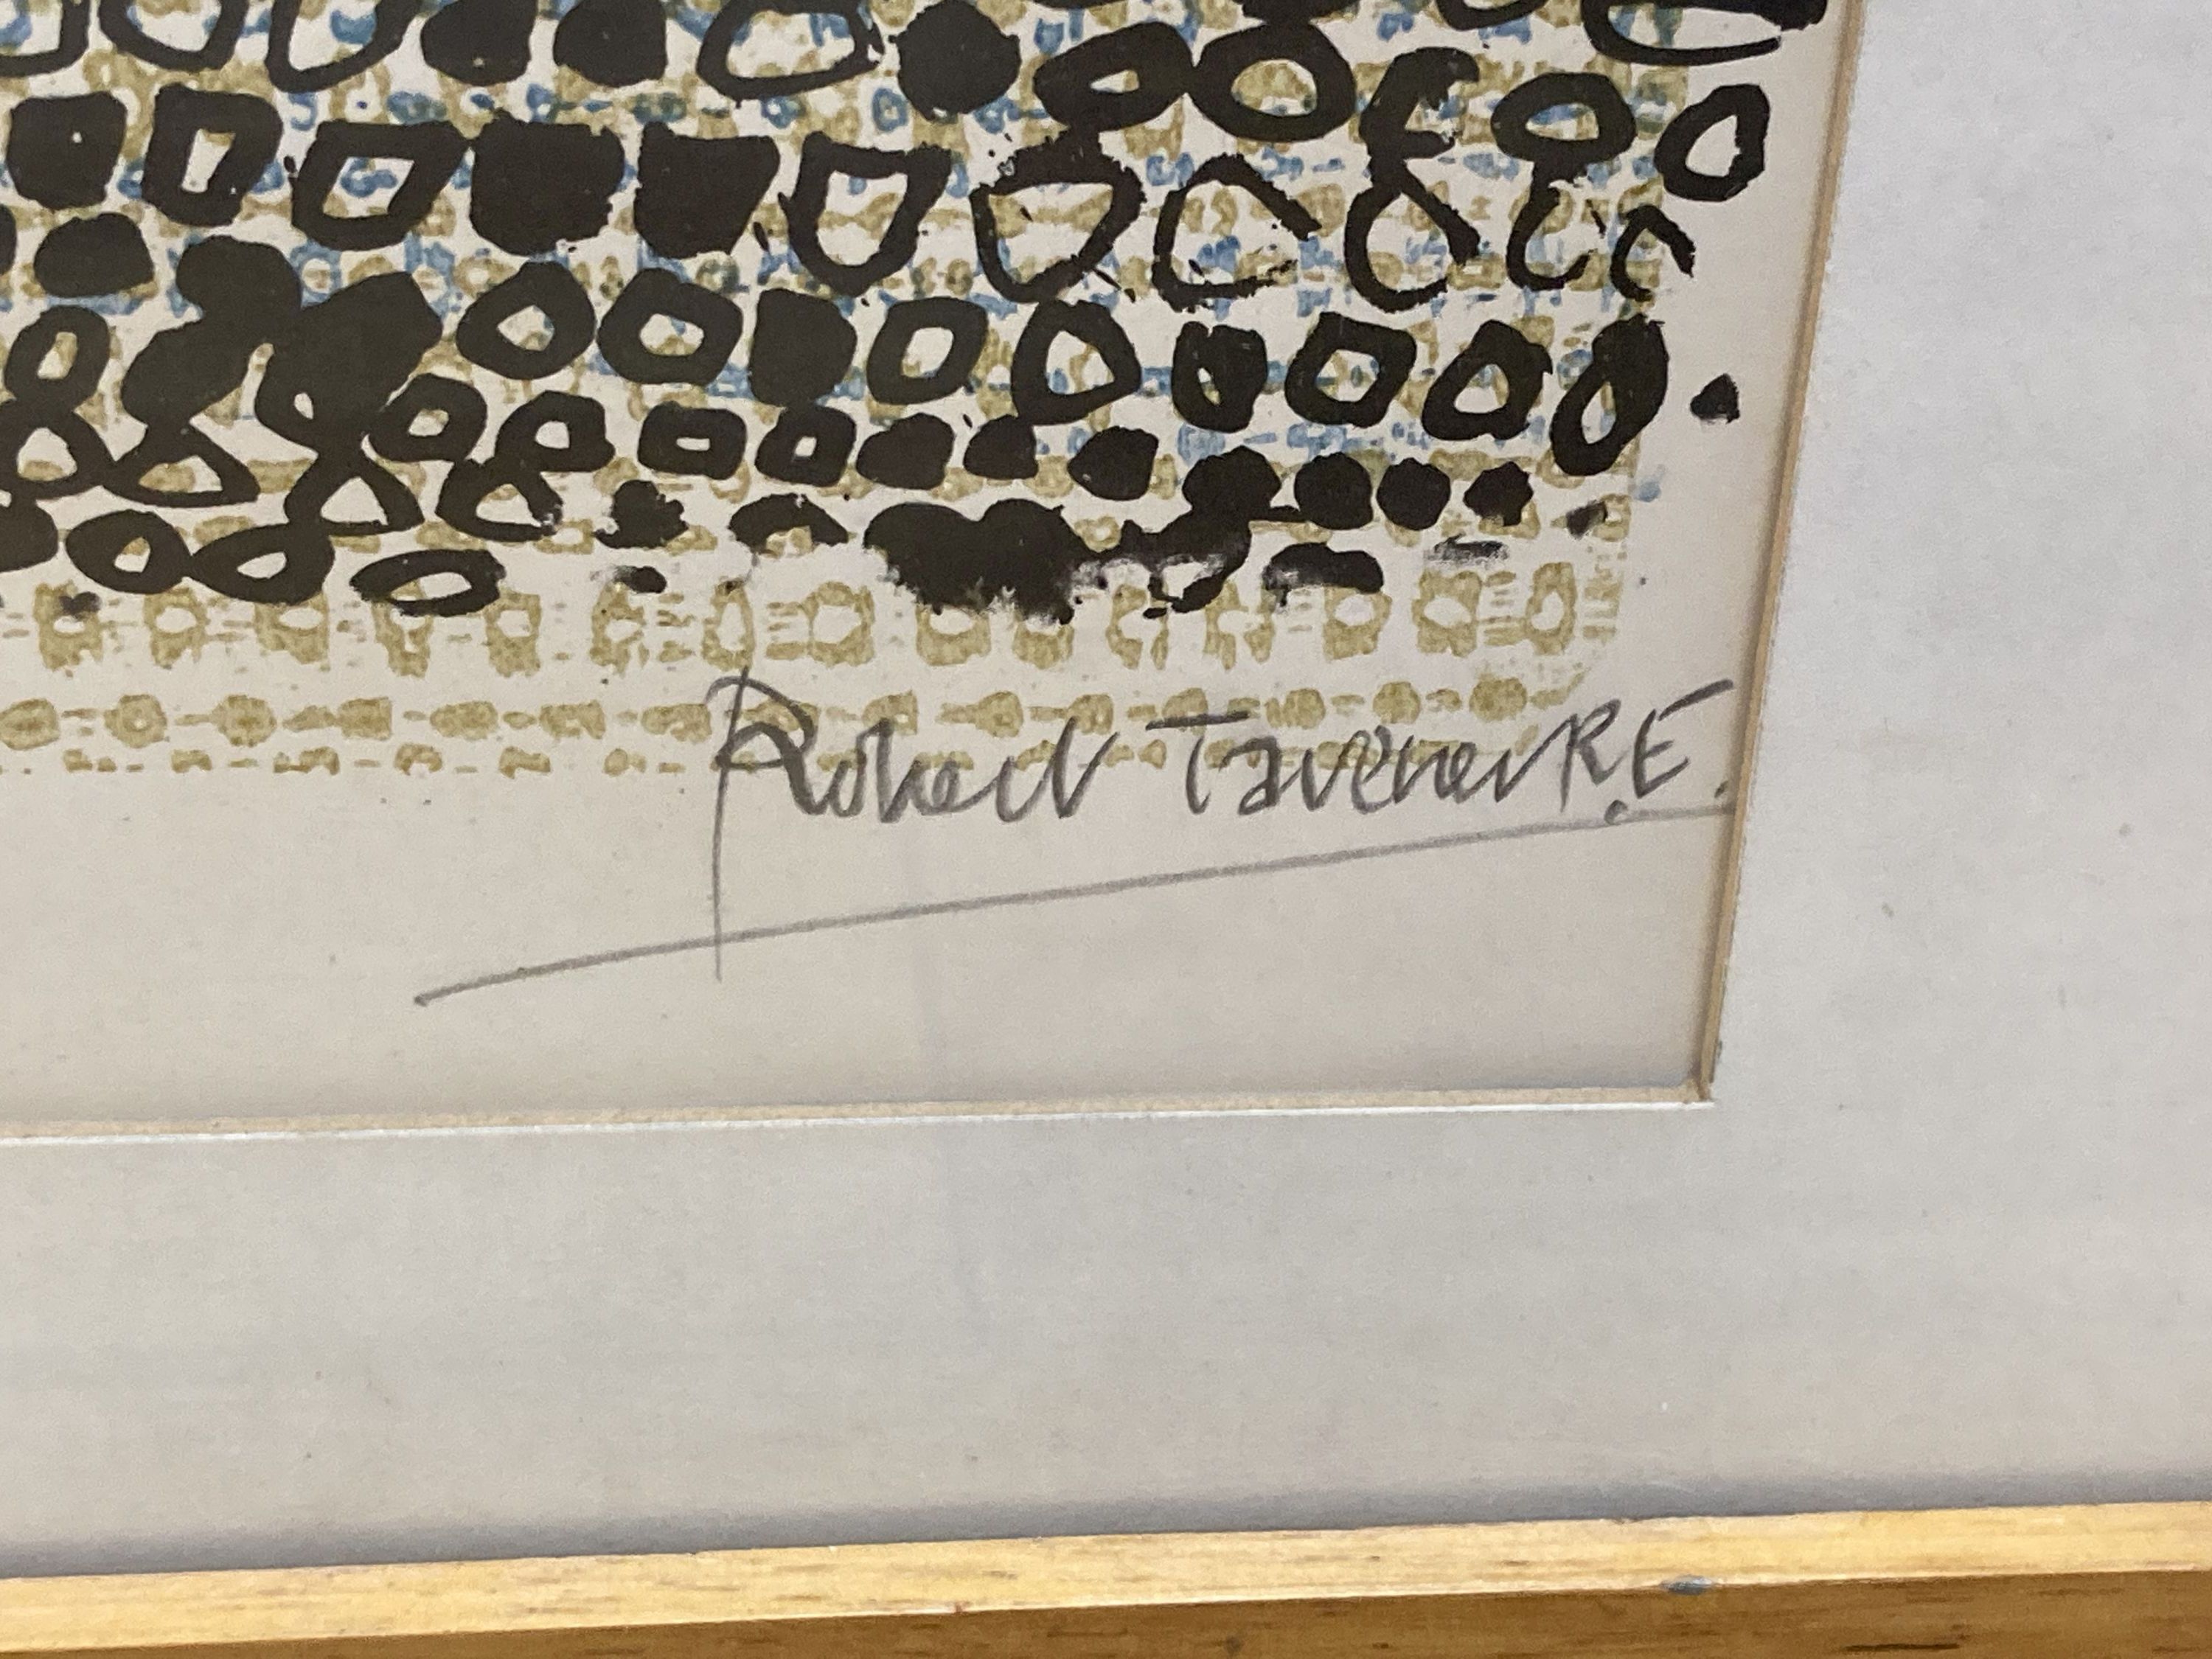 Robert Tavener R.E.